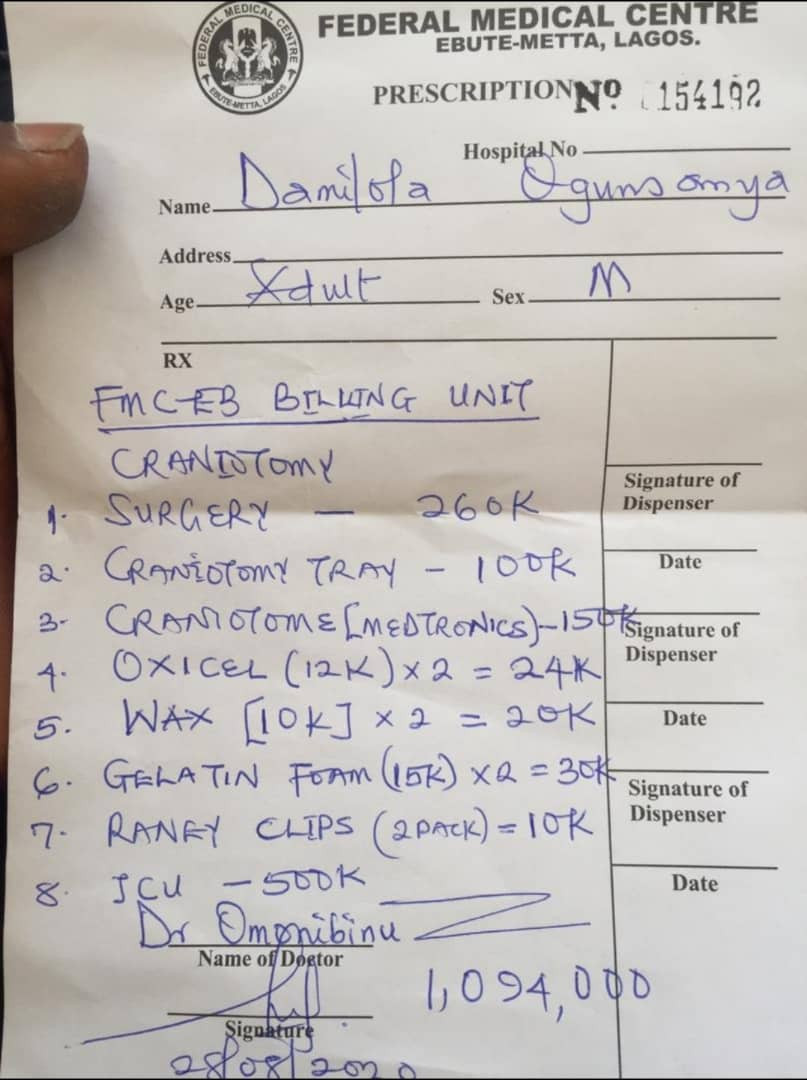 FEDERAL MEDICAL CENTRE
EBUTE-METTA, LAGOS.
FEDERAL MEDICAL CENTRE
EBUTE-METTA, LAGOS
PRESCRIPTION Nº 154192
Hospital No
Name Damilola Ogunsanya
Address
Age Adult Sex M
RX
FMC-EB BILLING UNIT
CRANIOTOMY
1. SURGERY — 260K
2. CRANIOTOMY TRAY - 100K
3- CRANIOTOME [MEDTRONICS)-150K
4. OXICEL (12K) x 2 = 24K
5. WAX [10K] x 2 = 20K
6. GELATIN FOAM (15K) x2 = 30K
7. RANEY CLIPS (2PACK) = 10K
8. ICU - 500K
Dr Omonibinu
Name of Doctor
1,094,000
Signature
28/08/2020
Signature of
Dispenser
Date
Signature of
Dispenser
Date
Signature of
Dispenser
Date